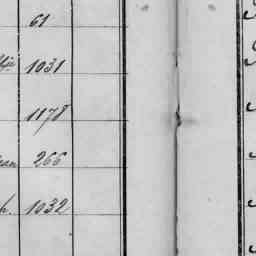 61
1031
1178
266
1032